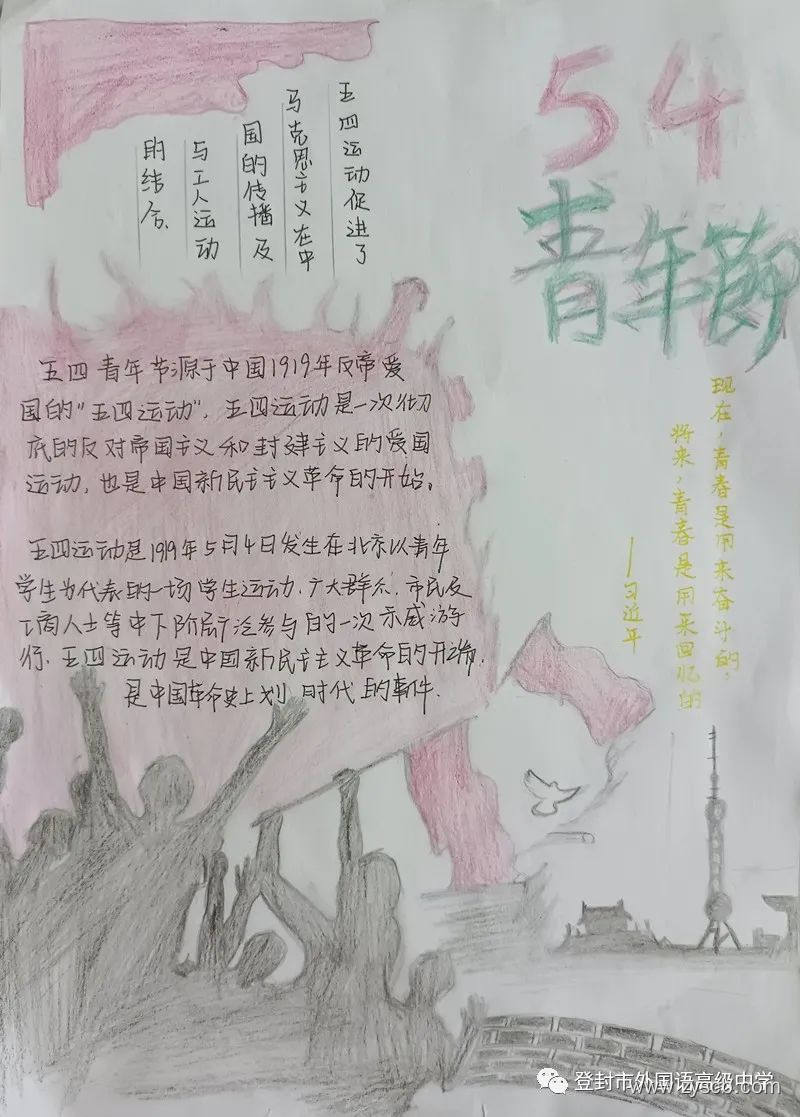 54
青年節
五四运动促进了
马克思主义在中
国的传播及
与工人运动
的结合.
五四青年节源于中国1919年反帝爱
国的"五四运动",五四运动是一次彻
底的反对帝国主义和封建主义的爱国
运动,也是中国新民主主义革命的开始。
五四运动是1919年5月4日发生在北京以青年
学生为代表的一场学生运动.广大群众.市民及
工商人士等中下阶层广泛参与的一次示威游
行.五四运动是中国新民主主义革命的开端.
是中国革命史上划时代的事件.
现在,青春是用来奋斗的,
将来,青春是用来回忆的
—习近平
登封市外国语高级中学
www.zysco.com